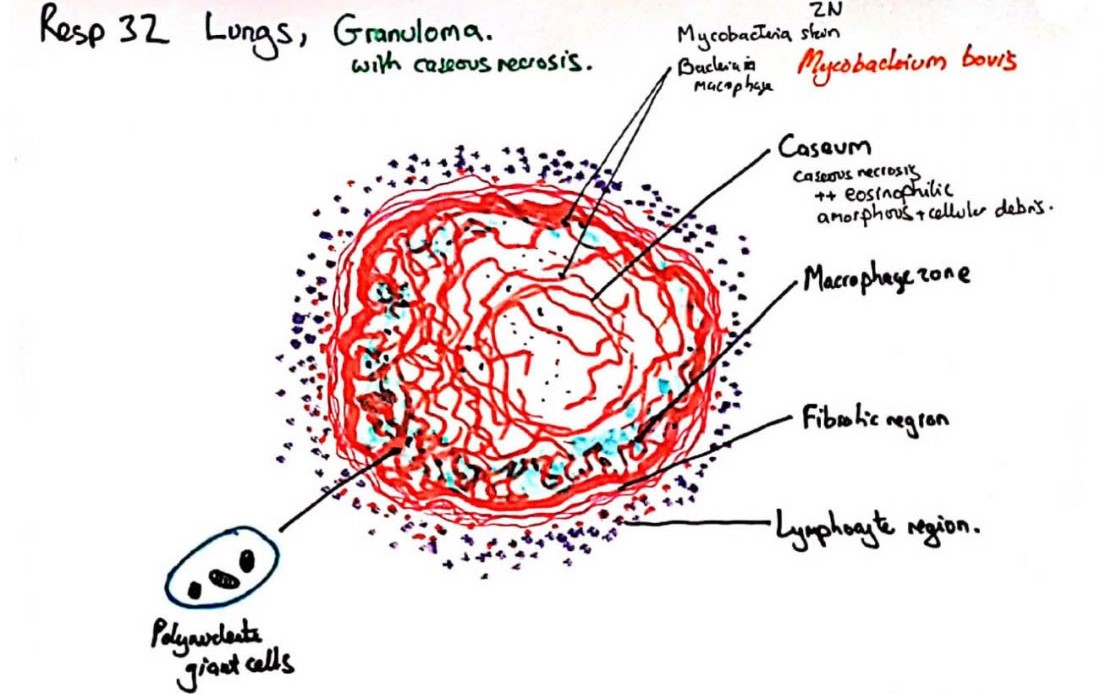 Resp 32 Lungs, Granuloma.
with caseous necrosis.
ZN
Mycobacteria stain
Bacteria in
macrophage
Mycobacterium bovis
Caseum
caseous necrosis
++ eosinophilic
amorphous + cellular debris.
Macrophage zone
Fibrotic region
Lymphocyte region.
Polynucleate
giant cells